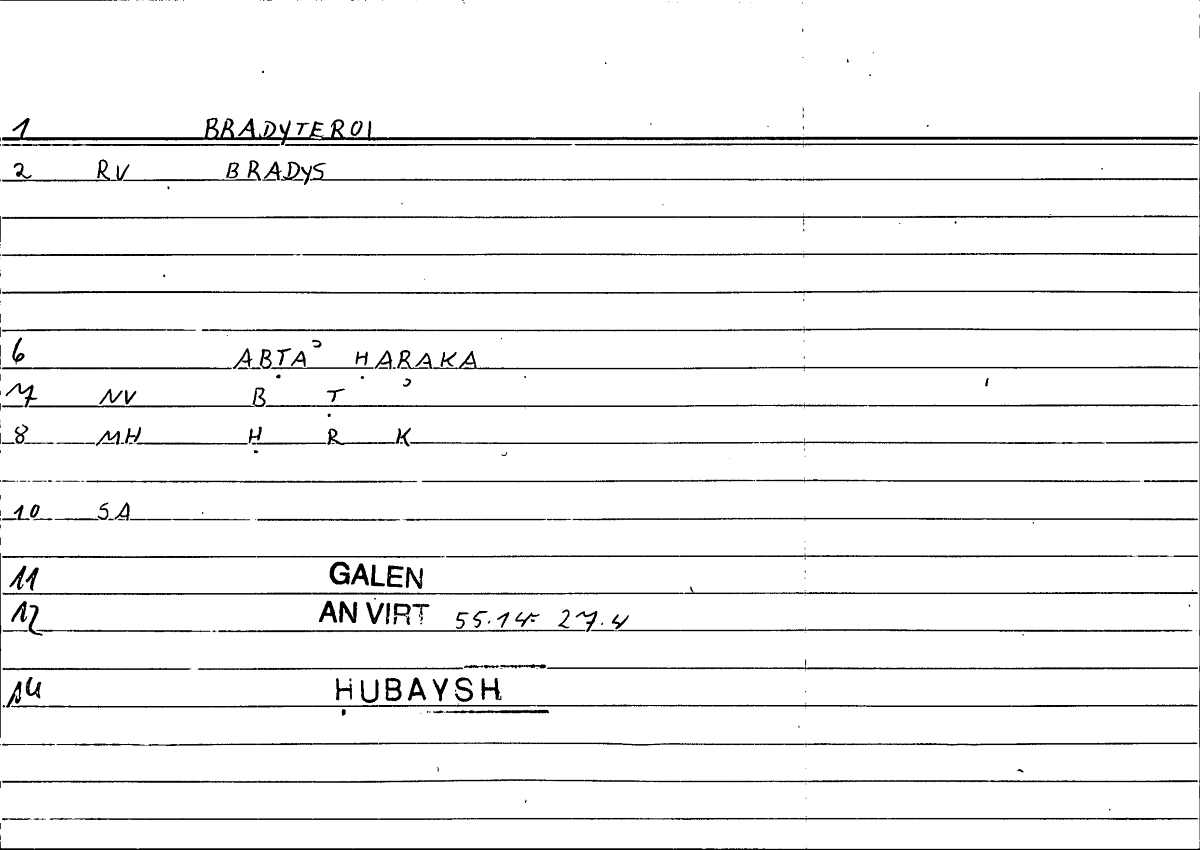 1 BRADYTEROI
2 RV BRADYS
6 ABṬAʾ ḤARAKA
7 NV B Ṭ ʾ
8 MH Ḥ R K
10 SA
11 GALEN
12 AN VIRT 55.14- 27.4
14 ḤUBAYSH